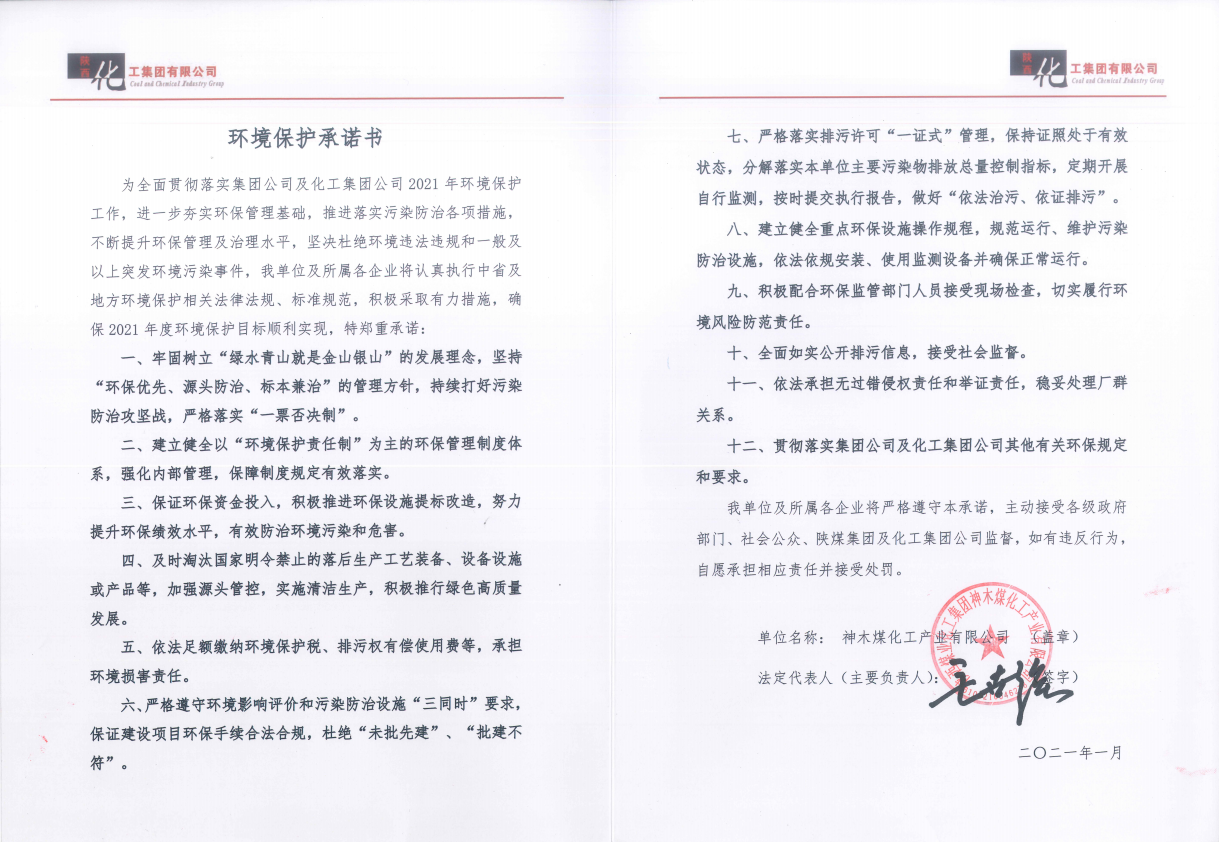 陕西化工集团有限公司
Coal and Chemical Industry Group
环境保护承诺书
为全面贯彻落实集团公司及化工集团公司 2021 年环境保护
工作，进一步夯实环保管理基础，推进落实污染防治各项措施，
不断提升环保管理及治理水平，坚决杜绝环境违法违规和一般及
以上突发环境污染事件，我单位及所属各企业将认真执行中省及
地方环境保护相关法律法规、标准规范，积极采取有力措施，确
保 2021 年度环境保护目标顺利实现，特郑重承诺：
一、牢固树立“绿水青山就是金山银山”的发展理念，坚持
“环保优先、源头防治、标本兼治”的管理方针，持续打好污染
防治攻坚战，严格落实“一票否决制”。
二、建立健全以“环境保护责任制”为主的环保管理制度体
系，强化内部管理，保障制度规定有效落实。
三、保证环保资金投入，积极推进环保设施提标改造，努力
提升环保绩效水平，有效防治环境污染和危害。
四、及时淘汰国家明令禁止的落后生产工艺装备、设备设施
或产品等，加强源头管控，实施清洁生产，积极推行绿色高质量
发展。
五、依法足额缴纳环境保护税、排污权有偿使用费等，承担
环境损害责任。
六、严格遵守环境影响评价和污染防治设施“三同时”要求，
保证建设项目环保手续合法合规，杜绝“未批先建”、“批建不
符”。
陕西化工集团有限公司
Coal and Chemical Industry Group
七、严格落实排污许可“一证式”管理，保持证照处于有效
状态，分解落实本单位主要污染物排放总量控制指标，定期开展
自行监测，按时提交执行报告，做好“依法治污、依证排污”。
八、建立健全重点环保设施操作规程，规范运行、维护污染
防治设施，依法依规安装、使用监测设备并确保正常运行。
九、积极配合环保监管部门人员接受现场检查，切实履行环
境风险防范责任。
十、全面如实公开排污信息，接受社会监督。
十一、依法承担无过错侵权责任和举证责任，稳妥处理厂群
关系。
十二、贯彻落实集团公司及化工集团公司其他有关环保规定
和要求。
我单位及所属各企业将严格遵守本承诺，主动接受各级政府
部门、社会公众、陕煤集团及化工集团公司监督，如有违反行为，
自愿承担相应责任并接受处罚。
单位名称： 神木煤化工产业有限公司 （盖章）
法定代表人（主要负责人）： 签字）
二〇二一年一月